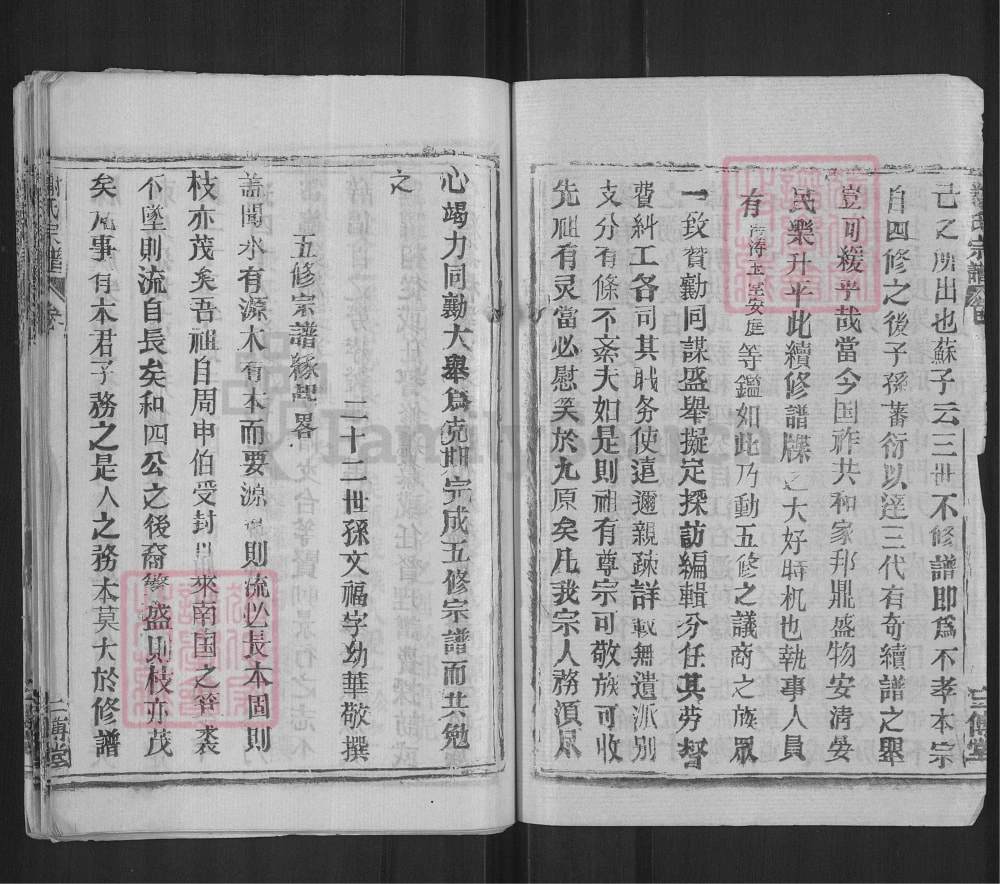 己之所出也蘇子云三世不修譜即爲不孝本宗
自四修之後子孫蕃衍以逹三代有奇續譜之舉
豈可緩乎哉當今国祚共和家邦鼎盛物安清晏
民樂升平此續修譜牒之大好時机也執事人員
有濤玉堂安庭等鑑如此乃動五修之議商之族眾
一致贊勷同謀盛舉擬定採訪編輯分任其劳督
費糾工各司其職务使遠邇親疎詳載無遺派別
支分有條不紊夫如是則祖有尊宗可敬族可收
先祖有灵當必慰笑於九原矣凡我宗人務須
心竭力同勷大舉爲克期完成五修宗譜而共勉
之
五修宗譜緣起畧
二十二世孫文福字幼華敬撰
盖聞水有源木有本而要源則流必長本固則
枝亦茂矣吾祖自周申伯受封以來南国之
不墜則流自長矣和四公之後裔繁盛則枝亦茂
矣凡事有本君子務之是人之務本莫大於修譜
謝氏宗譜
三傳堂